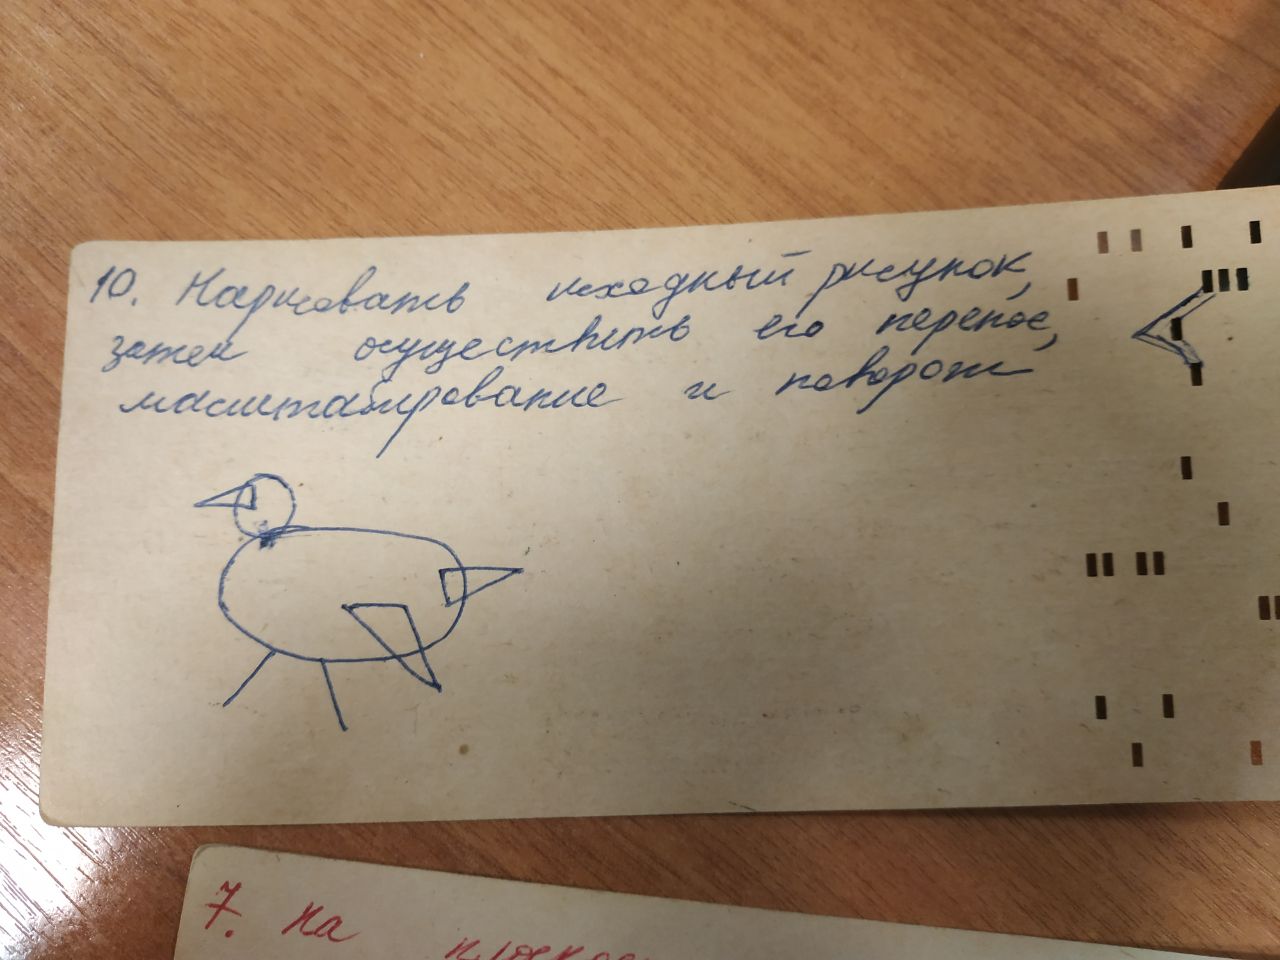 10. Нарисовать исходный рисунок,
затем осуществить его перенос,
масштабирование и поворот
7. На плоскос